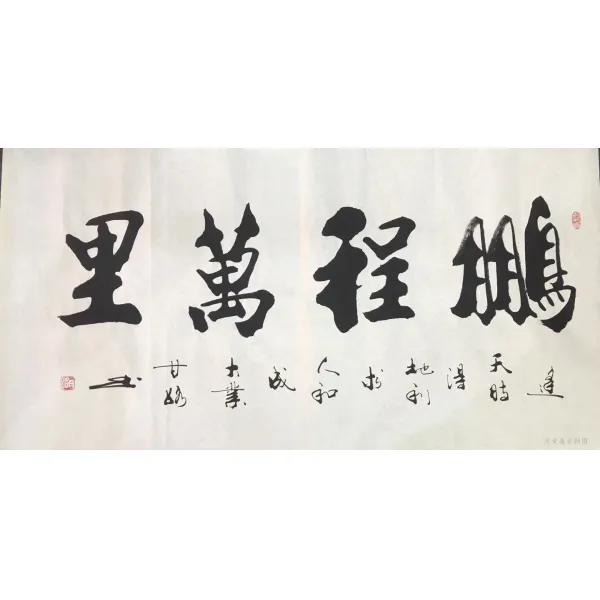 鵬程萬里
逢天時得地利於人和成大業